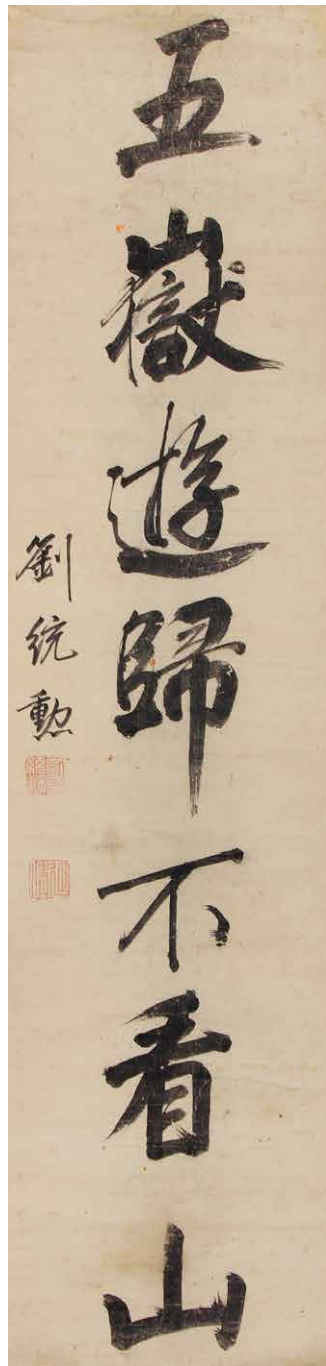 五嶽遊歸不看山
劉統勳